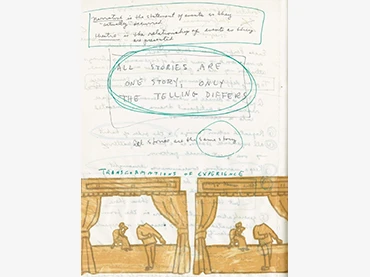 Narrative is the statement of events as they
"actually" occurred
is the relationship of events as they
are presented
ALL STORIES ARE
ONE STORY; ONLY
THE TELLING DIFFERS
All stories are the same story
TRANSFORMATIONS OF EXPERIENCE